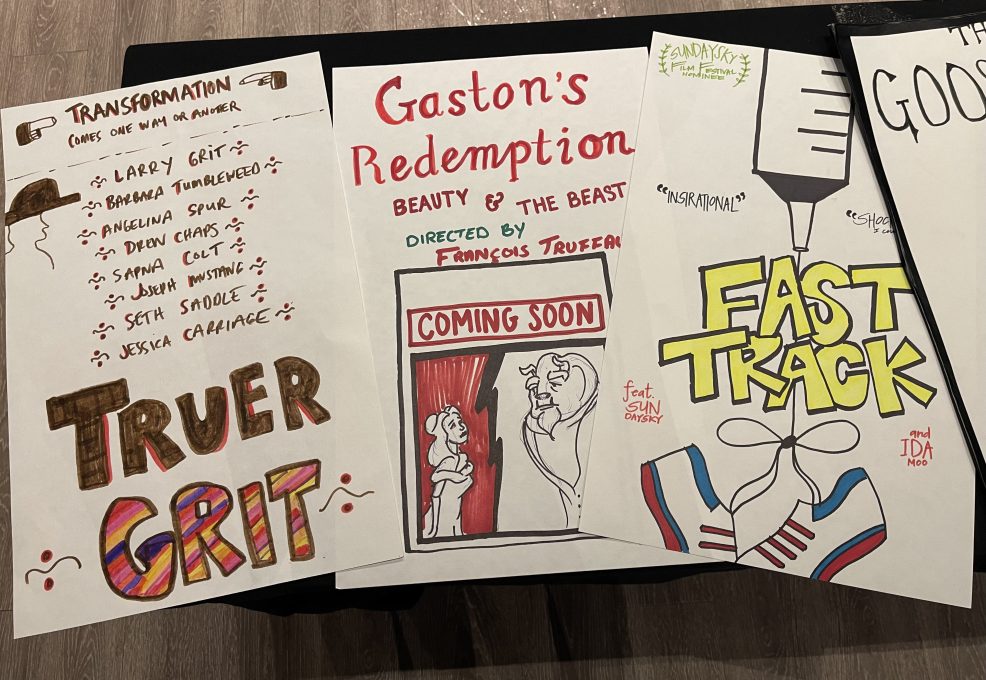 TRANSFORMATION
COMES ONE WAY OR ANOTHER
LARRY GRIT
BARBARA TUMBLEWEED
ANGELINA SPUR
DREW CHAPS
SAPNA COLT
JOSEPH MUSTANG
SETH SADDLE
JESSICA CARRIAGE
TRUER
GRIT
Gaston's
Redemption
BEAUTY & THE BEAST
DIRECTED BY
FRANÇOIS TRUFFAU
COMING SOON
SUNDAYSKY
FILM FESTIVAL
NOMINEE
"INSIRATIONAL"
"SHOC
FAST
TRACK
feat.
SUN
DAYSKY
and
IDA
MOO
TH
GOOS